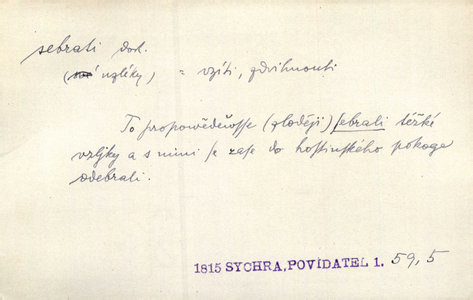 sebrati dok.
(uzlíky) = vzíti, zdvihnouti
To propowěděwsse (zloději) sebrali těžké
uzljky a s nimi se zase do hostinského pokoge
odebrali.
1815 SYCHRA, POVÍDATEL 1. 59,5